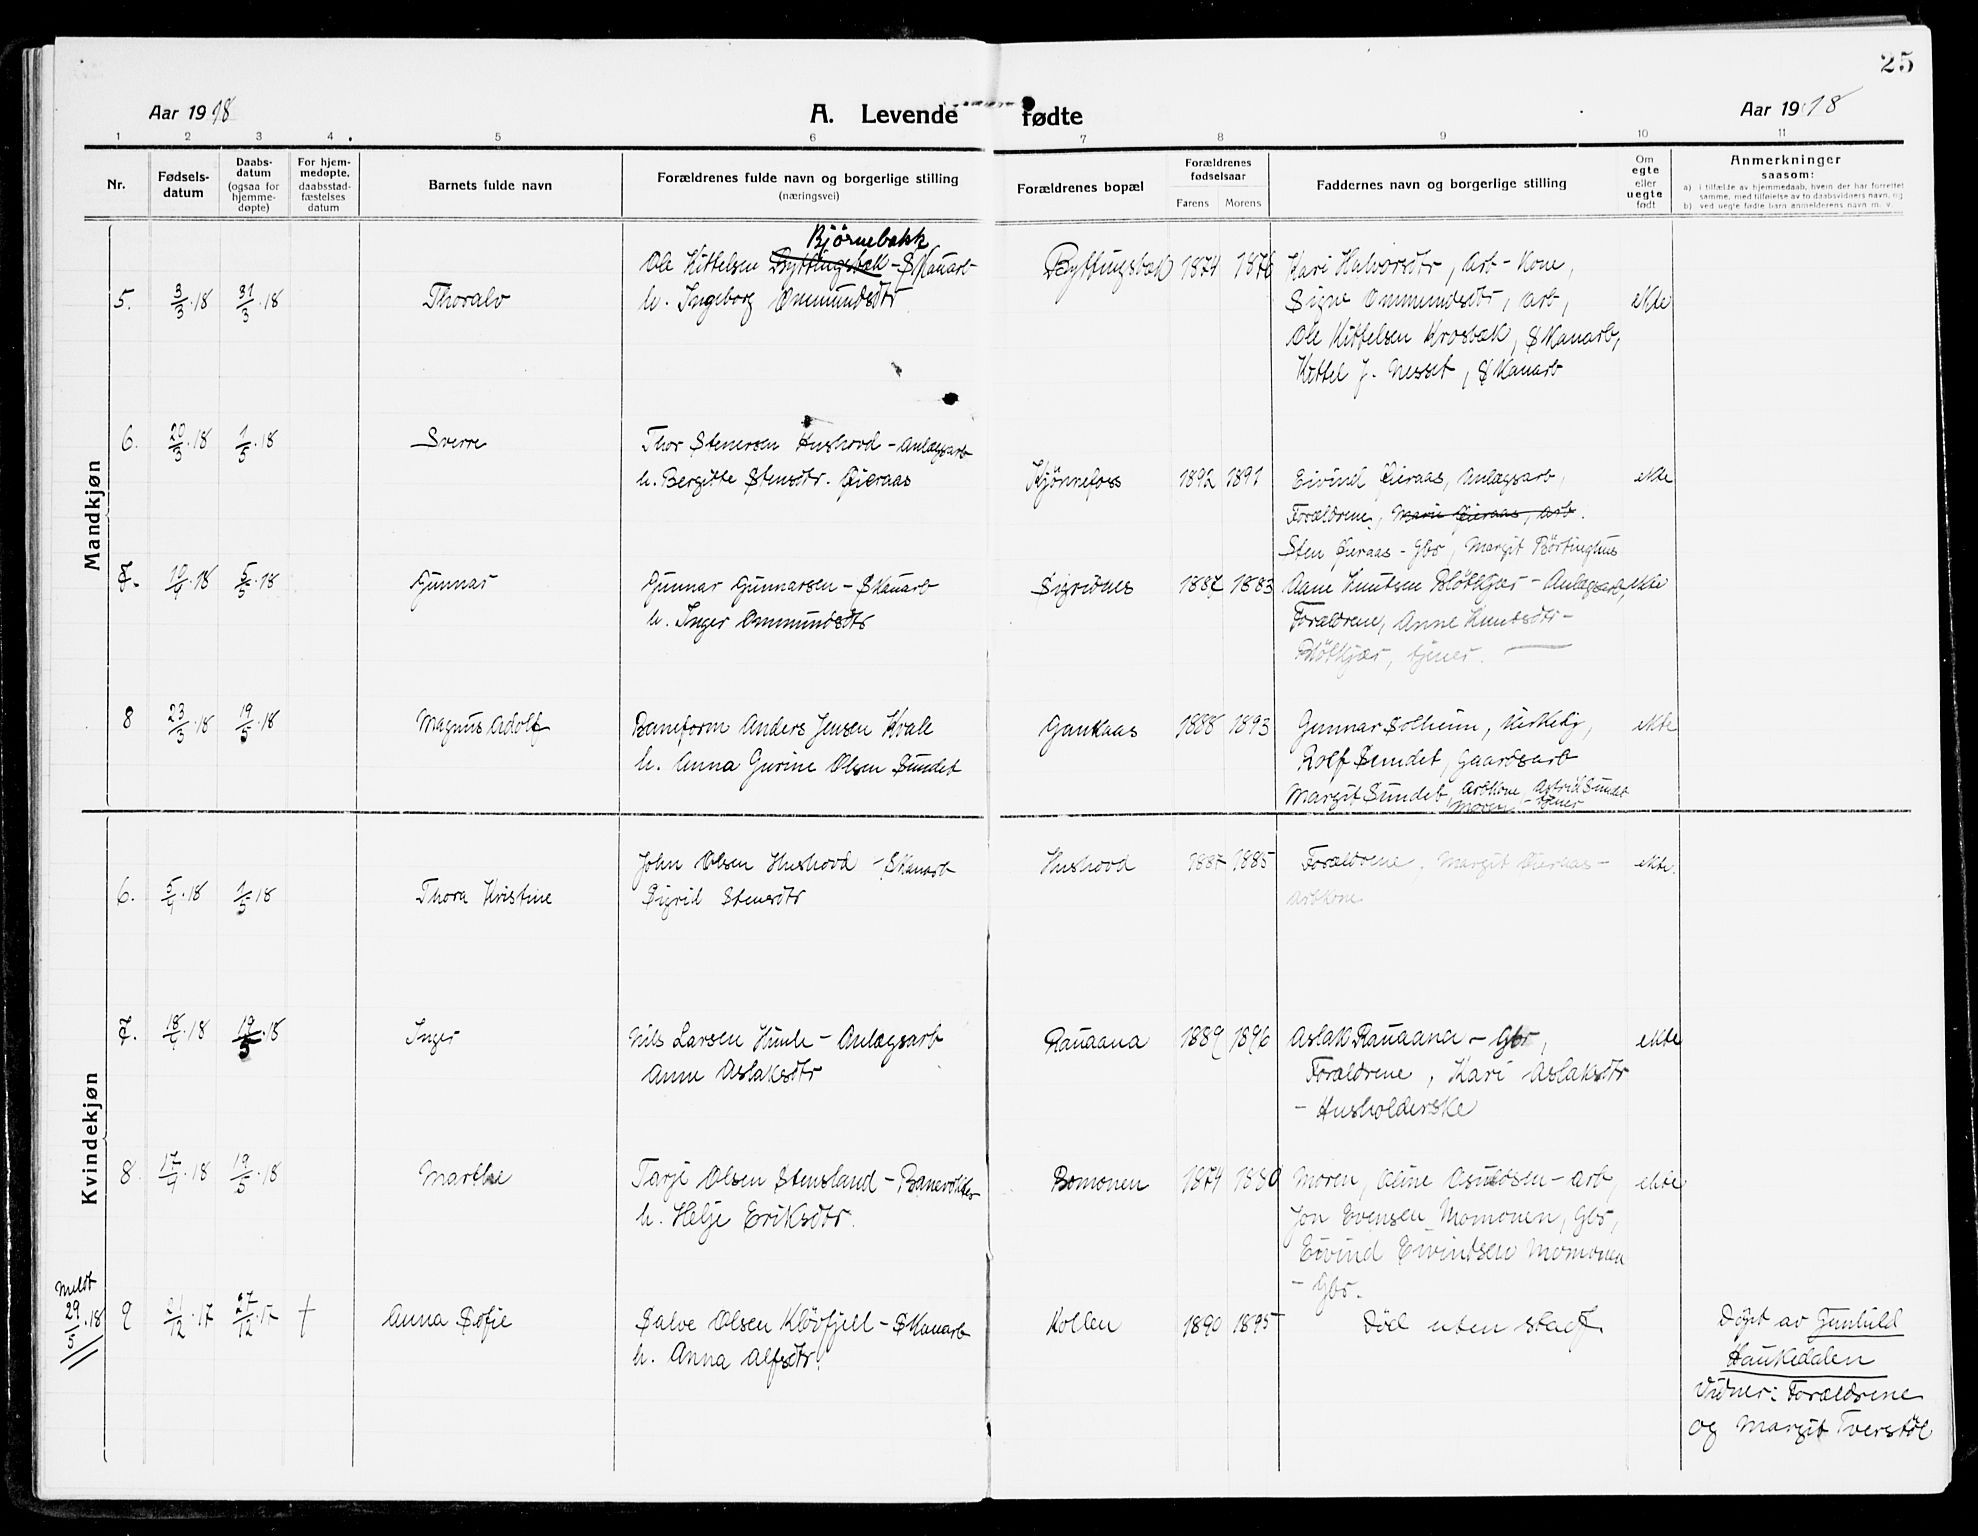 25
Aar 1918
A. Levende fødte
Aar 1918
1 2 3 4 5 6 7 8 9 10 11
Nr.
Fødsels-
datum
Daabs-
datum
(ogsaa for
hjemme-
døpte)
For hjem-
medøpte,
daabsstad-
fæstelses
datum
Barnets fulde navn
Forældrenes fulde navn og borgerlige stilling
(næringsvei)
Forældrenes bopæl
Forældrenes
fødselsaar
Farens Morens
Faddernes navn og borgerlige stilling
Om
egte
eller
uegte
født
Anmerkninger
saasom:
a) i tilfælde av hjemmedaab, hvem der har forrettet
samme, med tilføielse av to daabsvidners navn, og
b) ved uegte fødte barn anmelderens navn m. v.
Mandkjøn
5. 3/3.18 31/3.18 Thoralv
Bjørnebakk
Ole Kittelsen Byttingsbæk - Skauarb
h. Ingeborg Ommundsdtr
Byttingsbæk 1874 1876
Kari Halvorsdtr, Arb-Kone,
Signe Ommundsdtr, arb,
Ole Kittelsen Krosbæk, Skauarb,
Kittel J. Nesset, Skauarb
ekte
6. 20/3.18 1/5.18 Sverre
Thor Stenersen Hushovd - Anlægsarb
h. Bergitte Stensdtr. Øieraas
Kjønnefoss 1892 1891
Eivind Øieraas, Anlægsarb,
Forældrene, Marie Øieraas, arb.
Sten Øieraas - Gbr, Margit Børtinghus
ekte
7. 10/4.18 5/5.18 Gunnar
Gunnar Gunnarsen - Skauarb
h. Inger Ommundsdtr
Sigridnes 1887 1883
Aane Knutsen Bløtkjær - Anlægsarb,
Forældrene, Anne Knutsdtr -
Bløtkjær, tjener.
ekte
8 23/3.18 19/5.18 Magnus Adolf
Baneform Anders Jensen Kvale
h. Anna Gurine Olsen Sundet
Gaukaas 1888 1893
Gunnar Solheim,
Rolf Sundet, Gaardsarb
Margit Sundet, Arbkone, Astrid Sundet
Moren - tjener
ekte
Kvindekjøn
6. 5/4.18 1/5.18 Thora Kristine
John Olsen Hushovd - Skauarb
Sigrid Stensdtr
Hushovd 1887 1885
Forældrene, Margit Øieraas -
arbkone
ekte.
7. 18/4.18 19/5.18 Inger
Nils Larsen Humle - Anlægsarb
Anne Aslaksdtr
Rauaana 1889 1896
Aslak Rauaana - Gbr,
Forældrene, Kari Aslaksdtr
- Husholderske
ekte
8. 17/4.18 19/5.18 Marthe
Tarje Olsen Stensland - Banevokter
h. Helje Eriksdtr.
Bomonen 1874 1880
Moren, Oline Asuldsen - arb,
Jon Evensen Momonen, Gbr,
Eivind Eivindsen Momonen
- Gbr.
ekte
Meldt
29/5.18
9 21/12.17 27/12.17 † Anna Sofie
Salve Olsen Kløvfjell - Skauarb
h. Anna Alfsdtr.
Kollen 1890 1895
Død uten stadf.
Døpt av Gunhild
Haukedalen
Vidner: Forældrene
og Margit Tverstøl